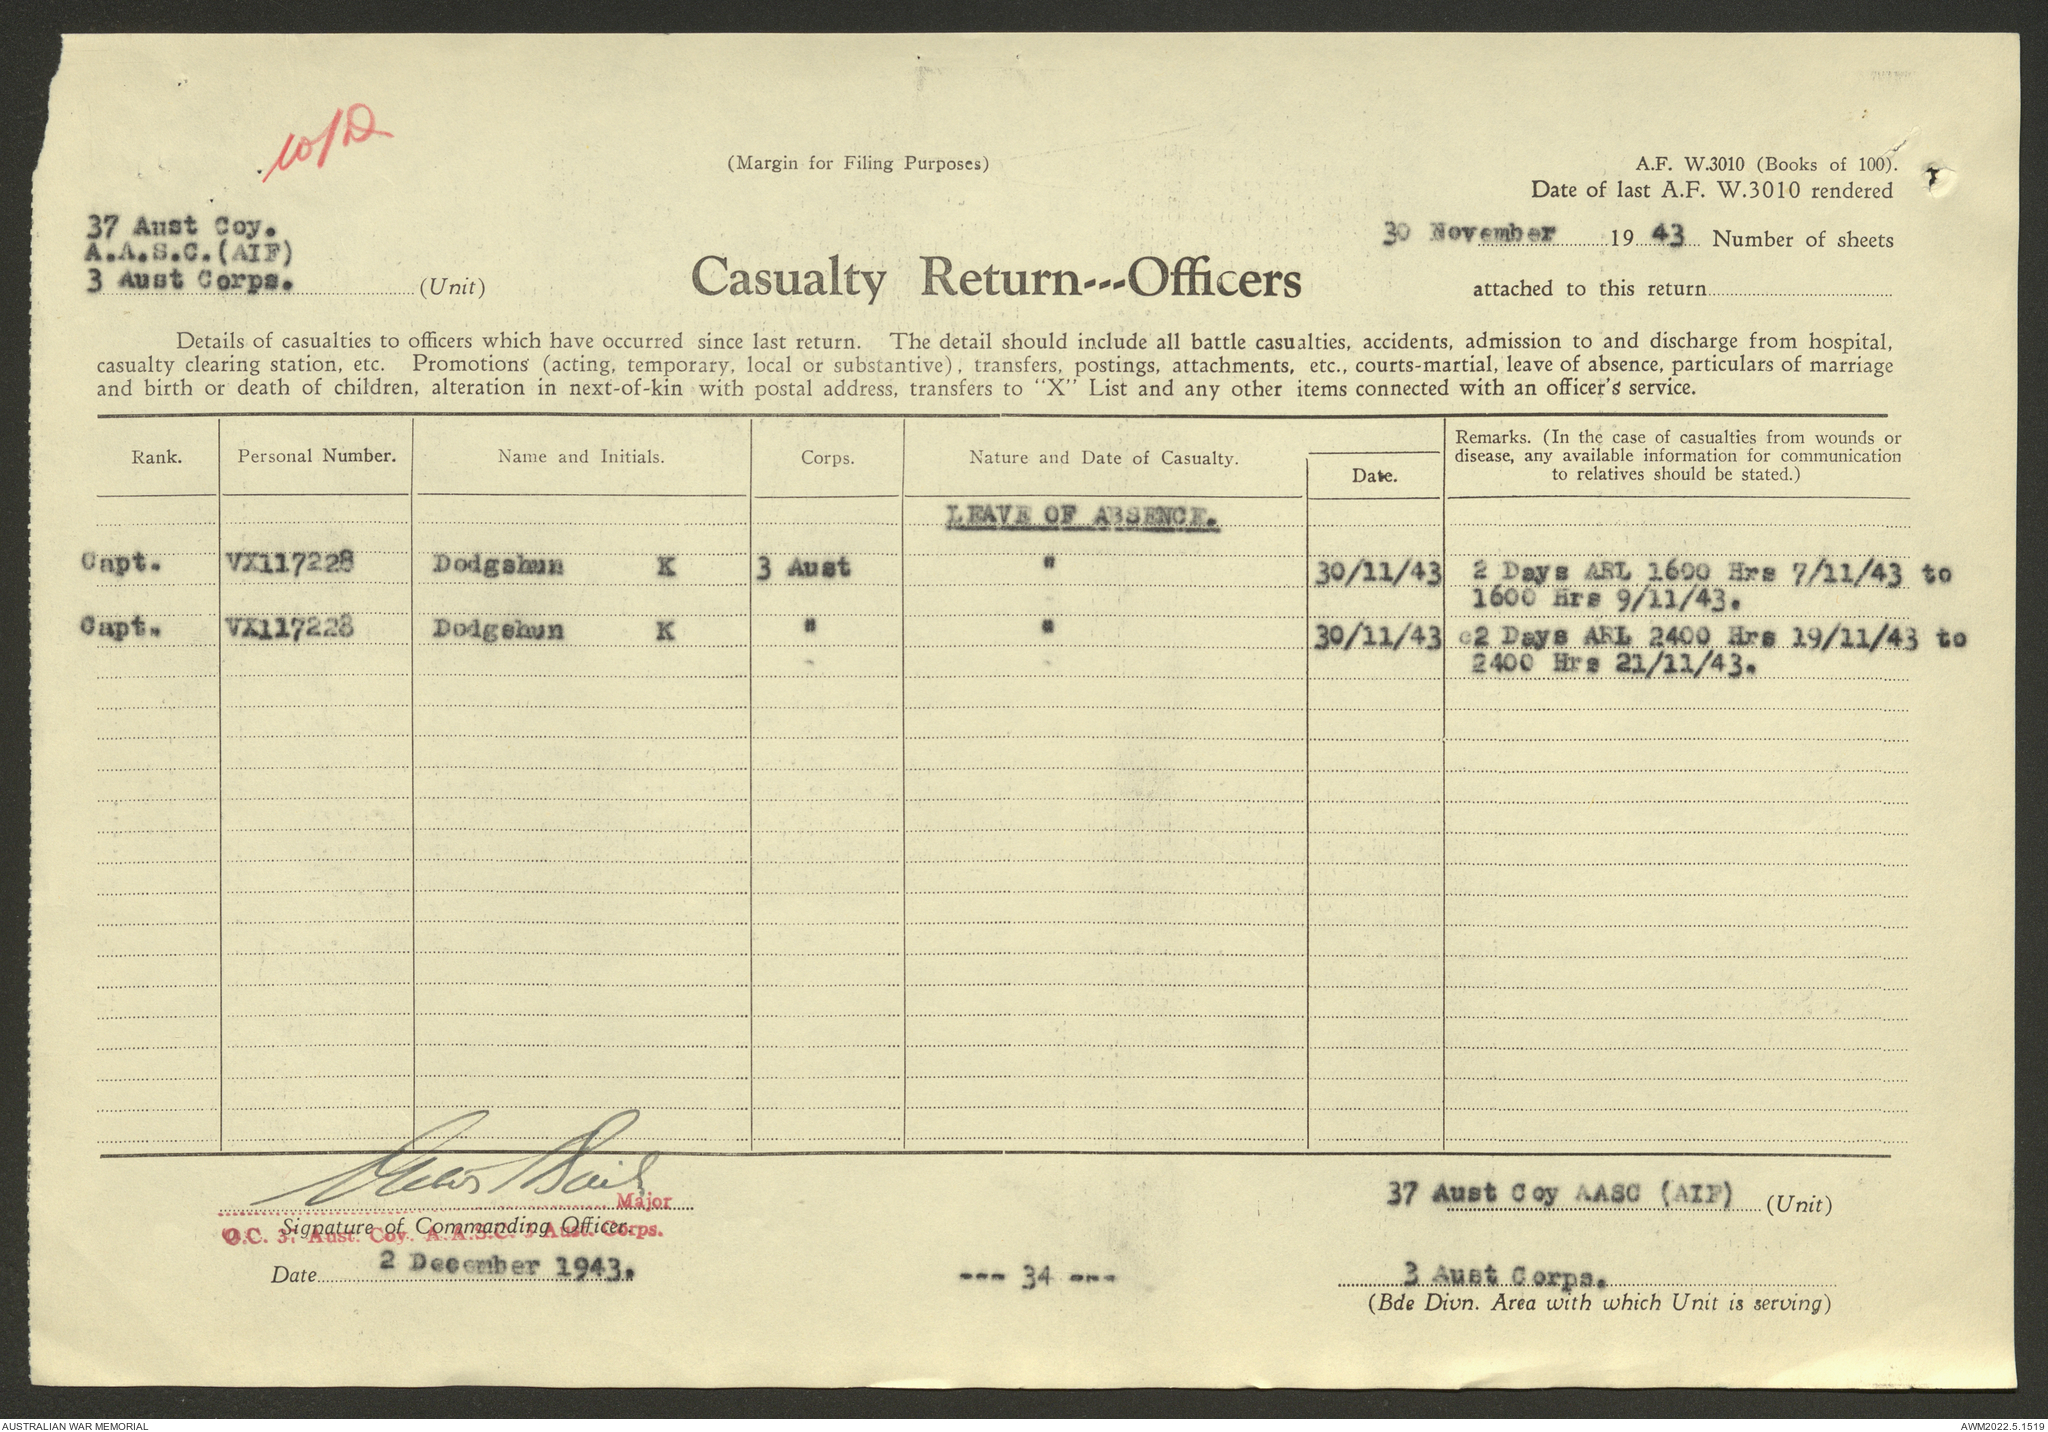 W/D
(Margin for Filing Purposes)
A.F. W.3010 (Books of 100).
Date of last A.F. W.3010 rendered
37 Aust Coy.
A.A.S.C.(AIF)
3 Aust Corps. (Unit)
30 November 1943 Number of sheets
attached to this return
Casualty Return---Officers
Details of casualties to officers which have occurred since last return. The detail should include all battle casualties, accidents, admission to and discharge from hospital,
casualty clearing station, etc. Promotions (acting, temporary, local or substantive), transfers, postings, attachments, etc., courts-martial, leave of absence, particulars of marriage
and birth or death of children, alteration in next-of-kin with postal address, transfers to "X" List and any other items connected with an officer's service.
Rank. Personal Number. Name and Initials. Corps. Nature and Date of Casualty. Date. Remarks. (In the case of casualties from wounds or
disease, any available information for communication
to relatives should be stated.)
LEAVE OF ABSENCE.
Capt. VX117228 Dodgshun K 3 Aust " 30/11/43 2 Days ARL 1600 Hrs 7/11/43 to
1600 Hrs 9/11/43.
Capt. VX117228 Dodgshun K " " 30/11/43 c2 Days ARL 2400 Hrs 19/11/43 to
2400 Hrs 21/11/43.
Major
Signature of Commanding Officer.
O.C. 37 Aust. Coy. A.A.S.C. 3 Aust. Corps.
Date 2 December 1943.
--- 34 ---
37 Aust Coy AASC (AIF) (Unit)
3 Aust Corps.
(Bde Divn. Area with which Unit is serving)
AUSTRALIAN WAR MEMORIAL
AWM2022.5.1519